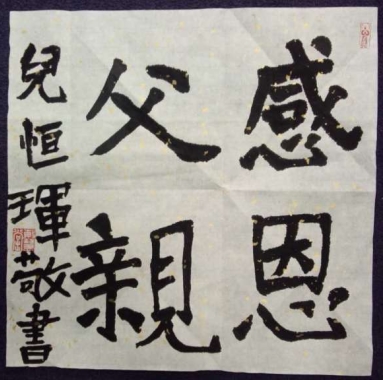 感恩
父親
兒恒琿敬書